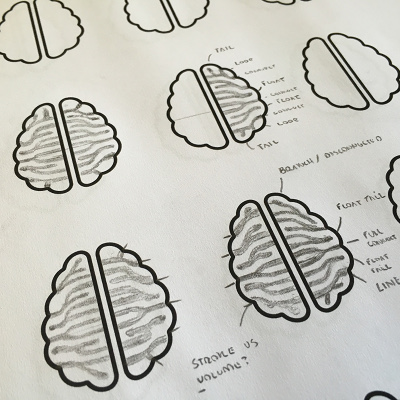 TAIL
LOOP
CONNECT
FLOAT
CONNECT
FLOAT
CONNECT
LOOP
TAIL
BRANCH / DISCONNECTED
FLOAT TAIL
FULL
CONNECT
FLOAT
TAIL
LINE
STROKE VS
VOLUME?